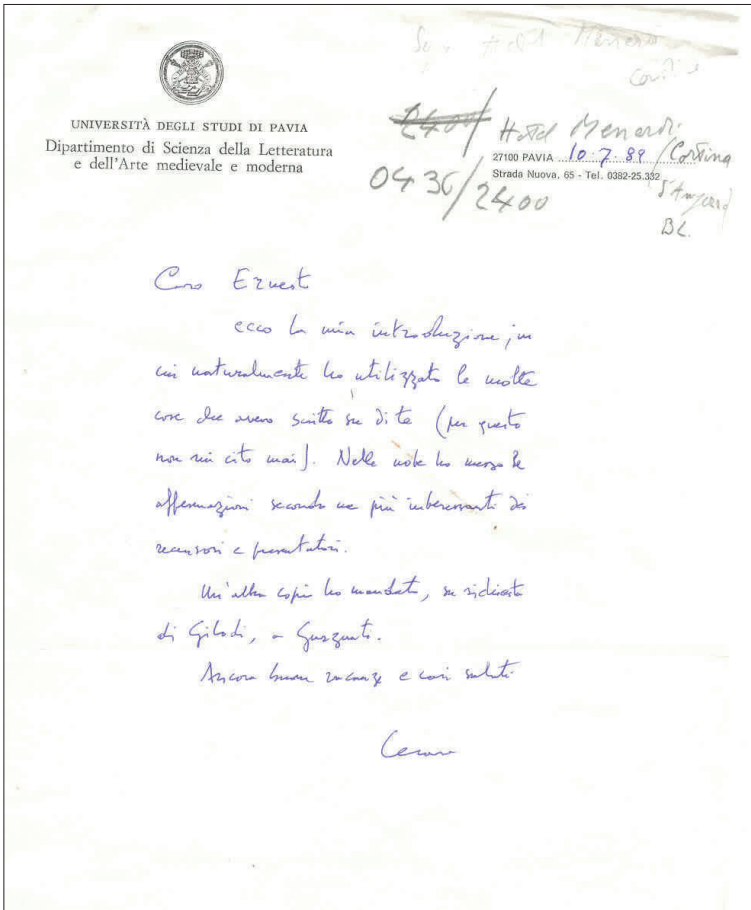 Hotel Menardi
Cortina
UNIVERSITÀ DEGLI STUDI DI PAVIA
Dipartimento di Scienza della Letteratura
e dell'Arte medievale e moderna
2400/
Hotel Menardi
27100 PAVIA 10.7.89 /Cortina
Strada Nuova, 65 - Tel. 0382-25.332
0436/2400
BL.
Caro Ernesto
ecco la mia introduzione, in
cui naturalmente ho utilizzato le molte
cose che avevo scritto su di te (per questo
non mi cito mai). Nelle note ho messo le
affermazioni secondo me più interessanti di
recensori e presentatori.
Un'altra copia ho mandato, su richiesta
di Gilodi, a
Ancora buone vacanze e cari saluti
Cesare